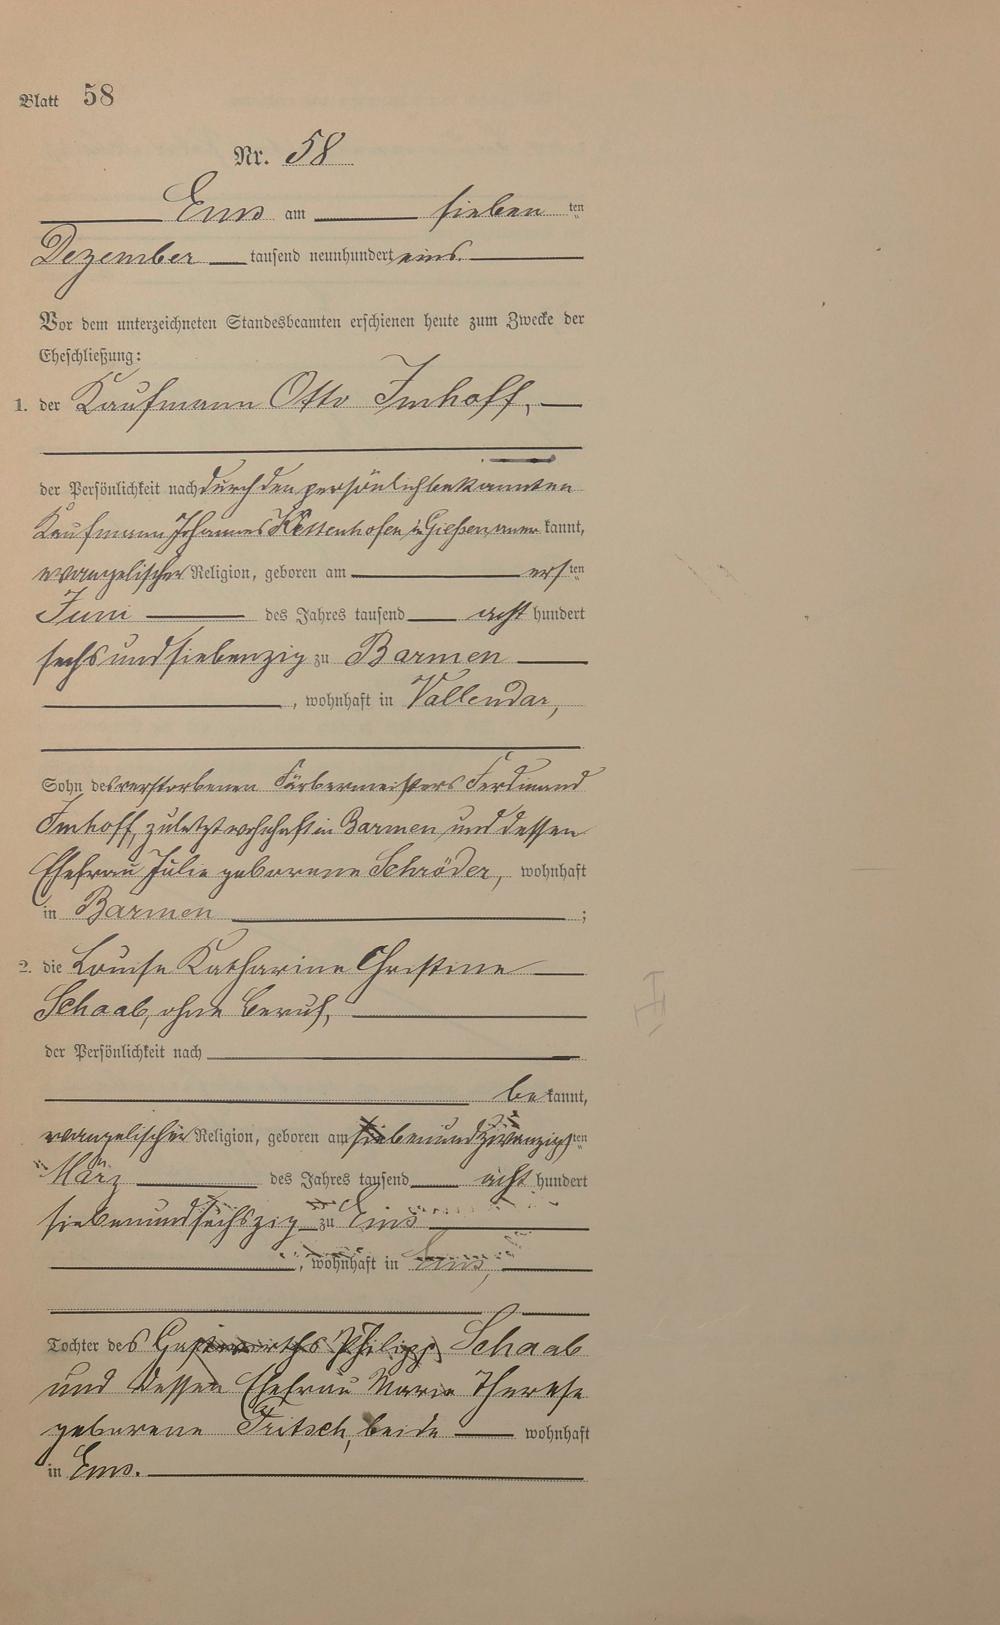 Blatt 58
Nr. 58
Ems am sieben ten
Dezember tausend neunhundert eins.
Vor dem unterzeichneten Standesbeamten erschienen heute zum Zwecke der
Eheschließung:
1. der Kaufmann Otto Imhoff,
der Persönlichkeit nach durch den persönlich bekannten
Kaufmann Johannes Kettenhofen in Gießen aner kannt,
evangelischer Religion, geboren am ersten
Juni des Jahres tausend acht hundert
sechsundsiebenzig zu Barmen
, wohnhaft in Vallendar,
Sohn des verstorbenen Färbermeisters Ferdinand
Imhoff, zuletzt wohnhaft in Barmen und dessen
Ehefrau Julie geborene Schröder, wohnhaft
in Barmen ;
2. die Louise Katharine Christine
Schaab, ohne Beruf,
der Persönlichkeit nach
be kannt,
evangelischer Religion, geboren am siebenundzwanzigsten
März des Jahres tausend acht hundert
siebenundsechszig zu Ems
, wohnhaft in Ems,
Tochter des Gastwirths Philipp Schaab
und dessen Ehefrau Marie Therese
geborene Fritsch, beide wohnhaft
in Ems.